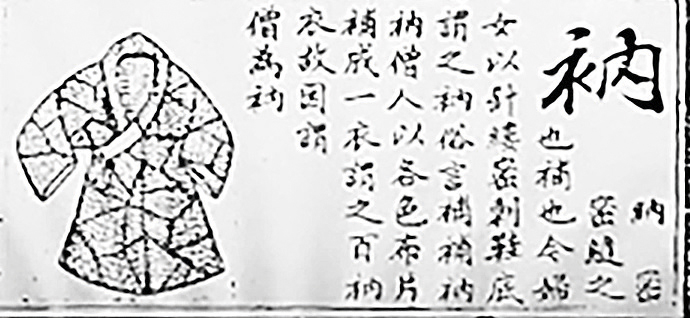 衲
納 密
密縫之
也補也今婦
女以針縷密刺鞋底
謂之衲俗言補補衲
衲僧人以各色布片
補成一衣謂之百衲
衣故因謂
僧為衲